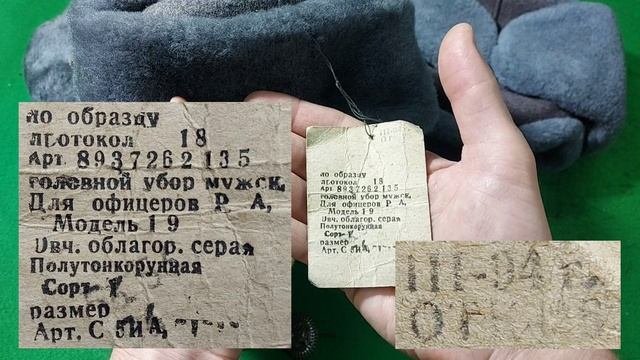 по образцу
протокол 18
Арт. 8937262135
головной убор мужск.
Для офицеров Р А,
Модель 19
Овч. облагор. серая
Полутонкорунная
Сорт
размер
Арт. С
по образцу
протокол 18
Арт 8937262135
головной убор мужск.
Для офицеров Р А,
Модель 19
Овч. облагор. серая
Полутонкорунная
Сорт
размер
Арт. С
III-94 г.